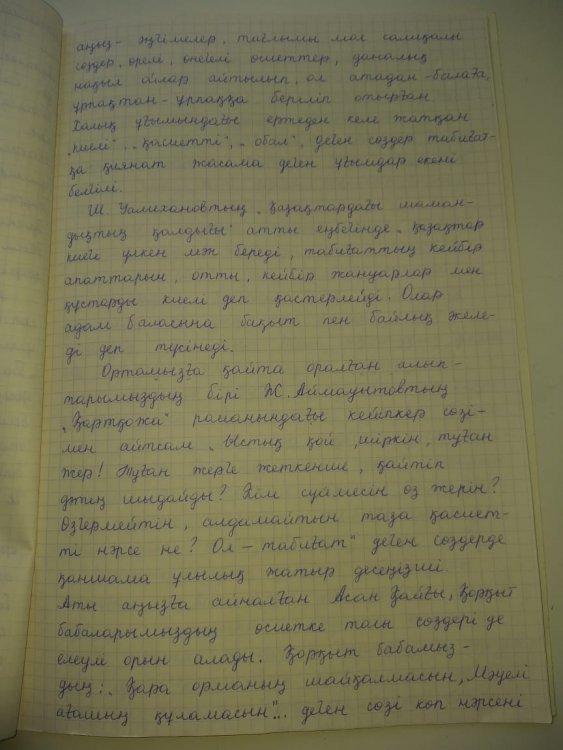 аңыз-әңгімелер, тағлымы мол салиқалы
сөздер, өрелі, өнегелі өсиеттер, даналық
нақыл ойлар айтылып, ол атадан-балаға,
ұрпақтан-ұрпаққа беріліп отырған.
Халық ұғымындағы ертеден келе жатқан
„киелі", „қасиетті", „обал", деген сөздер табиғат-
қа қиянат жасама деген ұғымдар екені
белгілі.
Ш. Уалихановтың „Қазақтардағы шаман-
дықтың қалдығы" атты еңбегінде „қазақтар
киеге үлкен мән береді, табиғаттың кейбір
апаттарын, отты, кейбір жануарлар мен
құстарды киелі деп қастерлейді. Олар
адам баласына бақыт пен байлық әкеле-
ді деп түсінеді.
Ортамызға қайта оралған алып-
тарымыздың бірі Ж. Аймауытовтың
„Қартқожа" романындағы кейіпкер сөзі-
мен айтсам „Ыстық қой, шіркін, туған
жер! Туған жерге жеткенше, қайтіп
дәтің шыдайды? Кім сүймесін өз жерін?
Өзгермейтін, алдамайтын таза қасиет-
ті нәрсе не? Ол – табиғат" деген сөздерде
қаншама ұлылық жатыр десеңізші.
Аты аңызға айналған Асан Қайғы, Қорқыт
бабаларымыздың өсиетке толы сөздері де
елеулі орын алады. Қорқыт бабамыз-
дың: „Қара орманың шайқалмасын, Мәуелі
ағашың құламасын"... деген сөзі көп нәрсені